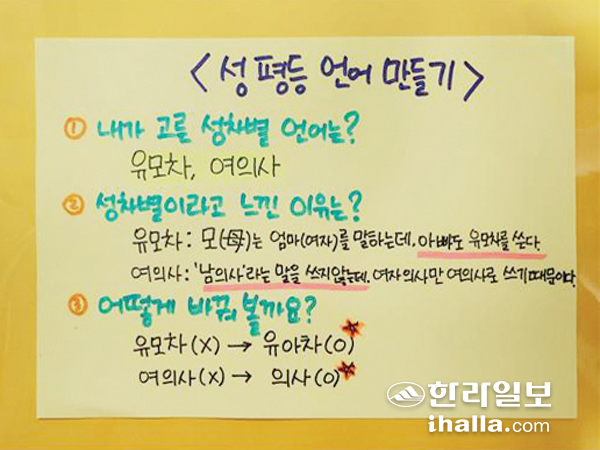 <성평등 언어 만들기>
① 내가 고른 성차별 언어는?
유모차, 여의사
② 성차별이라고 느낀 이유는?
유모차: 모(母)는 엄마(여자)를 말하는데, 아빠도 유모차를 쓴다.
여의사: '남의사'라는 말을 쓰지않는데, 여자의사만 여의사로 쓰기 때문이다.
③ 어떻게 바꿔 볼까요?
유모차(X) → 유아차(O)
여의사(X) → 의사(O)
한라일보
ihalla.com